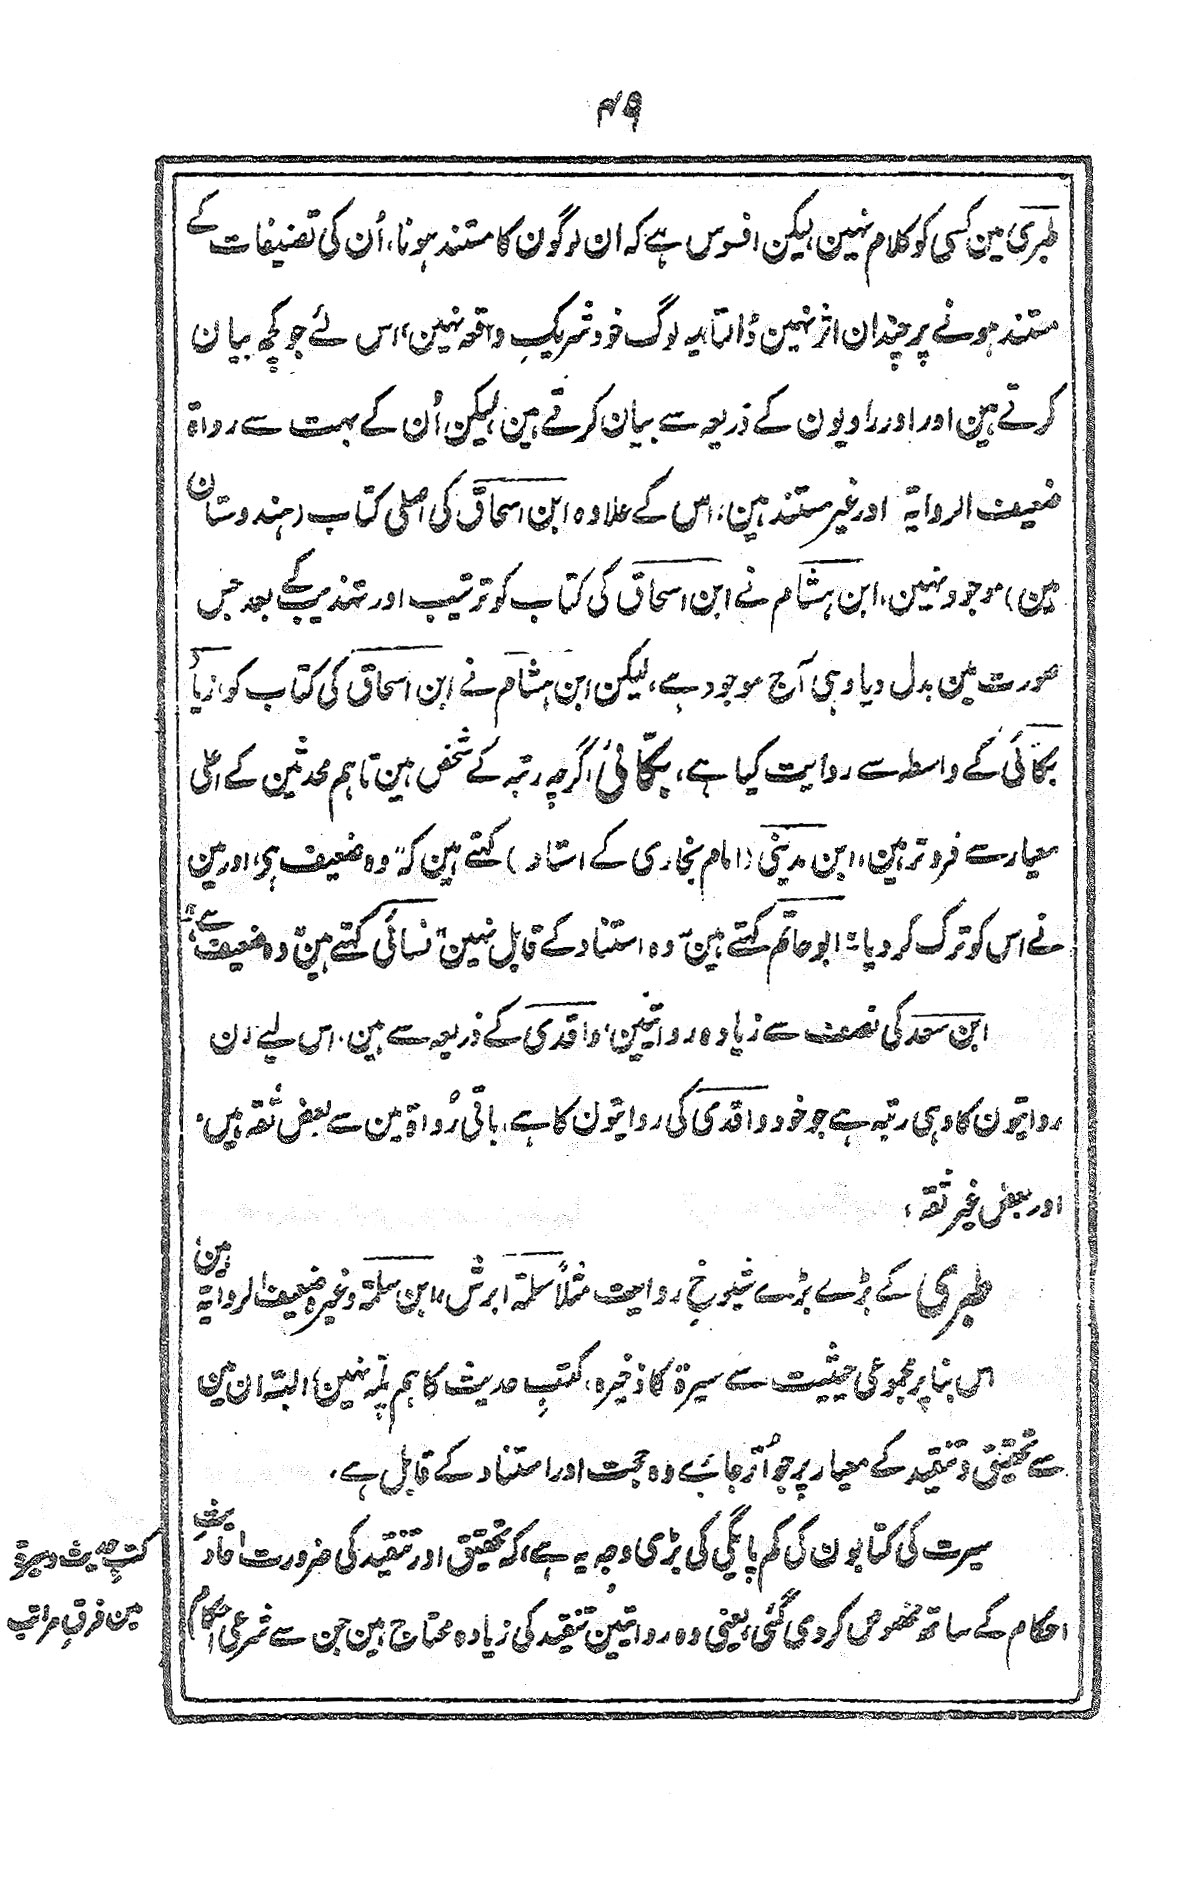 ۴۹
طبری مین کسی کو کلام نہین لیکن افسوس ہے کہ ان لوگون کا مستند ہونا، اُن کی تصنیفات کے
مستند ہونے پر چندان اثر نہین ڈالتا یہ لوگ خود شریکِ واقعہ نہین، اس لئے جو کچھ بیان
کرتے ہین اور اور راویون کے ذریعہ سے بیان کرتے ہین، لیکن اُن کے بہت سے رواۃ
ضعیف الروایۃ اور غیر مستند ہین، اس کے علاوہ ابن اسحاق کی اصلی کتاب (ہندوستان
مین) موجود نہین، ابن ہشام نے ابن اسحاق کی کتاب کو ترتیب اور تہذیب کے بعد جس
صورت مین بدل دیا وہی آج موجود ہے، لیکن ابن ہشام نے ابن اسحاق کی کتاب کو زیاد
بکائی کے واسطہ سے روایت کیا ہے، بکّائی اگرچہ رتبہ کے شخص ہین تاہم محدثین کے اعلیٰ
معیار سے فروتر ہین، ابن مدینی (امام بخاری کے استاد) کہتے ہین کہ "وہ ضعیف ہی، اور مین
نے اس کو ترک کر دیا" ابو حاتم کہتے ہین "وہ استناد کے قابل نہین" نسائی کہتے ہین "وہ ضعیف ہے"
ابن سعد کی نصف سے زیادہ روایتین، واقدی کے ذریعہ سے ہین، اس لیے ان
روایتون کا وہی رتبہ ہے جو خود واقدی کی روایتون کا ہے، باقی رُواۃ مین سے بعض ثقہ ہین،
اور بعض غیر ثقہ،
طبری کے بڑے بڑے شیوخِ روایت مثلاً سلمۃ ابرش، ابن سلمۃ وغیرہ ضعیف الروایۃ ہین
اس بنا پر مجموعی حیثیت سے سیرۃ کا ذخیرہ، کتبِ حدیث کا ہم پلّہ نہین، البتہ ان مین
سے تحقیق و تنقید کے معیار پر جو اُتر جائے وہ حجت اور استناد کے قابل ہے،
سیرت کی کتابون کی کم پائگی کی بڑی وجہ یہ ہے، کہ تحقیق اور تنقید کی ضرورت احادیثِ
احکام کے ساتھ مخصوص کر دی گئی، یعنی وہ روایتین تنقید کی زیادہ محتاج ہین جن سے شرعی احکام
کتبِ حدیث و سیرۃ
مین فرقِ مراتب